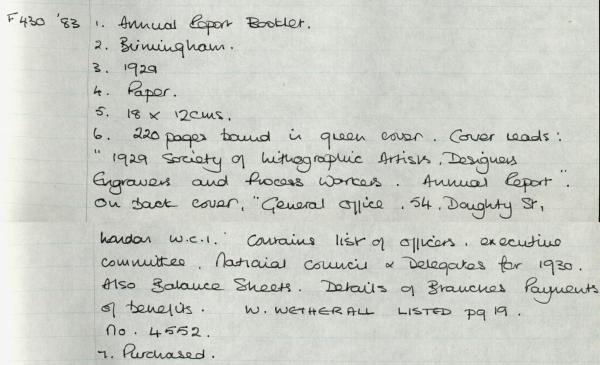 F430 '83 1. Annual Report Booklet.
2. Birmingham.
3. 1929
4. Paper.
5. 18 x 12cms.
6. 220 pages bound in green cover. Cover reads:
"1929 Society of Lithographic Artists, Designers
Engravers and Process Workers. Annual Report".
On back cover, "General Office, 54, Doughty St,
London W.C.1." Contains list of officers, executive
committee, National Council & Delegates for 1930.
Also Balance Sheets. Details of Branches Payments
of benefits. W. WETHERALL LISTED pg 19.
No. 4552.
7. Purchased.